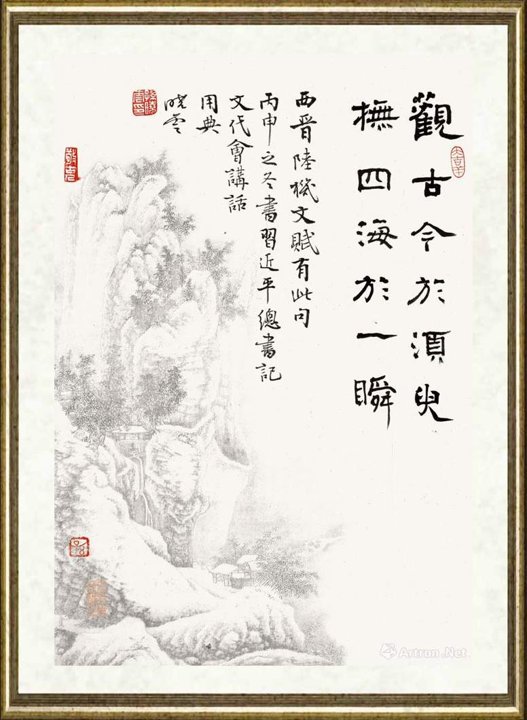 觀古今於須臾
撫四海於一瞬
西晉陸機文賦有此句
丙申之冬書習近平總書記
文代會講話
用典
曉雲
Artron.Net